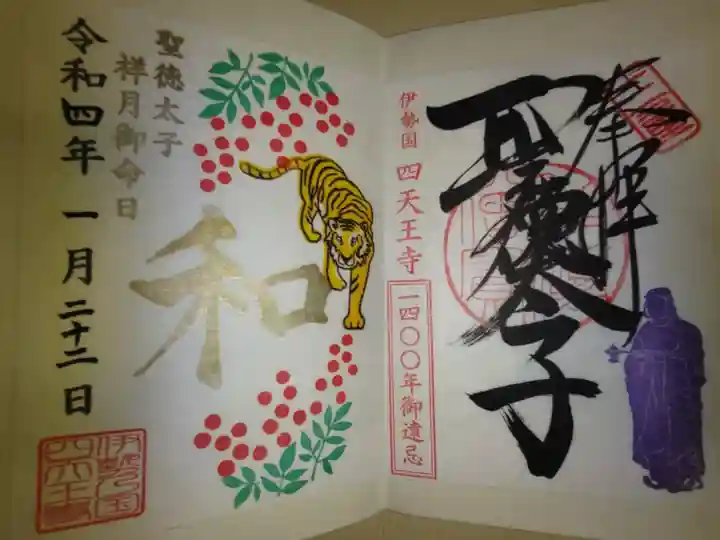 奉拝
聖徳太子
伊勢国 四天王寺
一四〇〇年御遠忌
和
聖徳太子
祥月御命日
令和四年 一月二十二日
伊勢之国
四天王寺